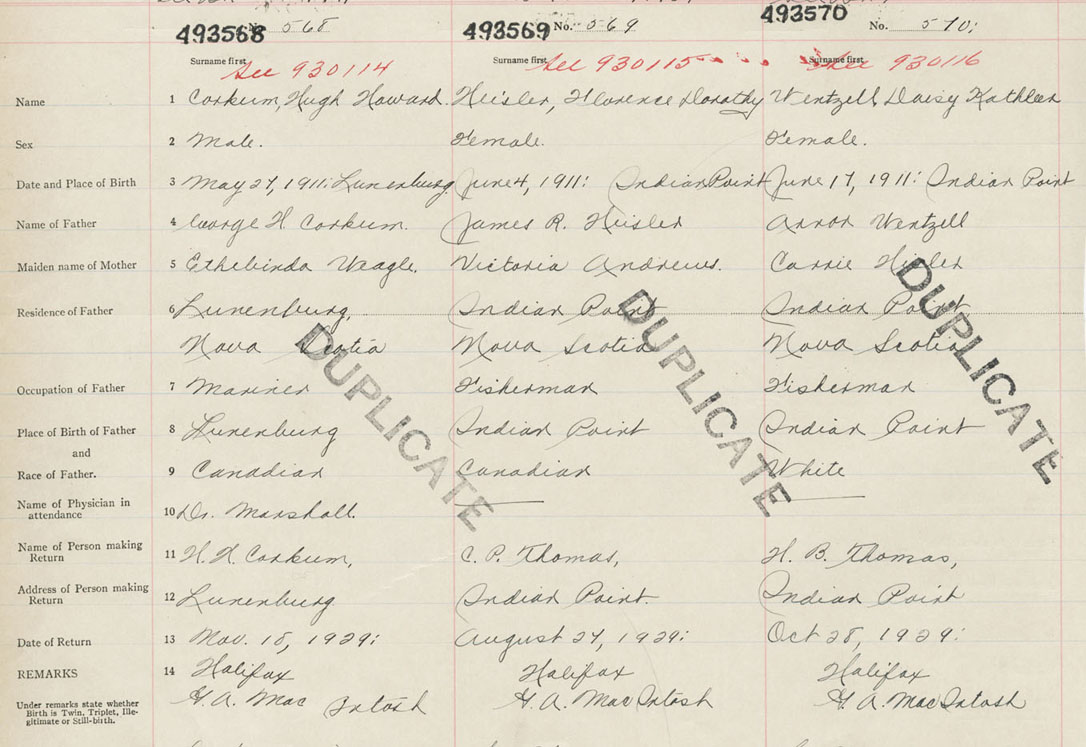 493568 No. 568 493569 No. 569 493570 No. 570;
Surname first Surname first Surname first
See 930114 See 930115 See 930116
Name 1 Corkum, Hugh Howard. Heisler, Florence Dorothy Wentzell Daisy Kathleen
Sex 2 Male. Female. Female.
Date and Place of Birth 3 May 27, 1911: Lunenburg June 4, 1911: Indian Point June 17, 1911: Indian Point
Name of Father 4 George H. Corkum. James R. Heisler Wentzell
Maiden name of Mother 5 Ethelinda Veagle. Victoria Andrews. Carrie Heisler
Residence of Father 6 Lunenburg, Indian Point Indian Point
Nova Scotia Nova Scotia Nova Scotia
Occupation of Father 7 Mariner Fisherman Fisherman
Place of Birth of Father 8 Lunenburg Indian Point Indian Point
and
Race of Father. 9 Canadian Canadian White
Name of Physician in
attendance 10 Dr. Marshall.
Name of Person making
Return 11 H. H. Corkum, C. P. Thomas, H. B. Thomas,
Address of Person making
Return 12 Lunenburg Indian Point. Indian Point
Date of Return 13 Nov. 18, 1929: August 27, 1929: Oct 28, 1929:
REMARKS 14 Halifax Halifax Halifax
H. A. Mac Intosh H. A. MacIntosh H. A. MacIntosh
Under remarks state whether
Birth is Twin, Triplet, Ille-
gitimate or Still-birth.
DUPLICATE DUPLICATE DUPLICATE